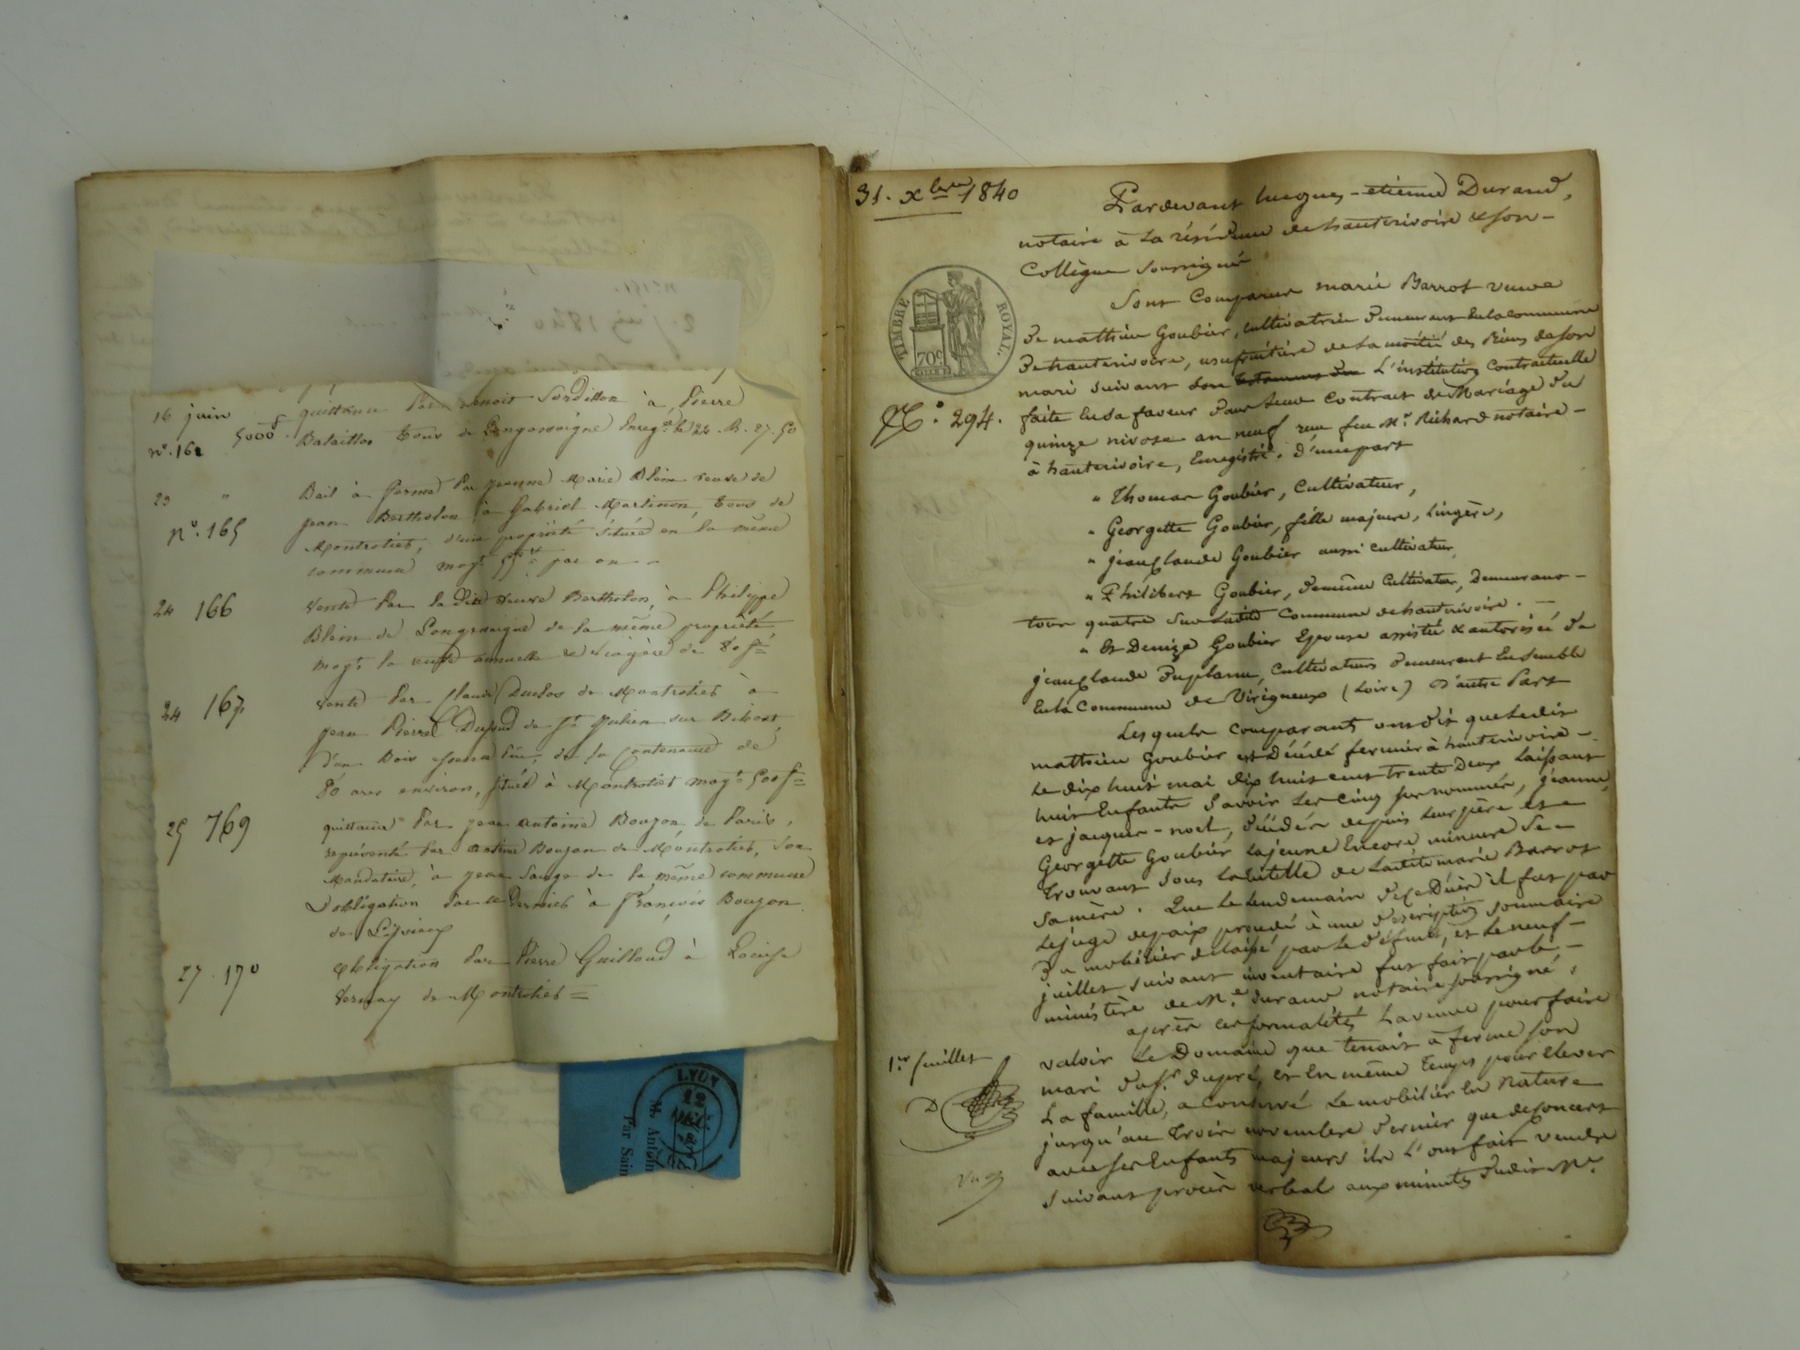 16 juin
nº. 162
5000f
quittance par Benoit Sordillon à Pierre
Bataillon tous de Longessaigne Enreg.é le 22. R. 27. 50
23 "
nº. 165
Bail à ferme par Jeanne Marie Blein veuve de
jean Bertholon, à Gabriel Martinon, tous de
Montrotier, d'une propriété située en la même
commune moy.t par an
24 166
Vente par la dite veuve Bertholon, à Philippe
Blein de Longessaigne de la même propriété
moy.t la rente annuelle & viagère de 80 f=
24 167.
Vente par Claude Duclos de Montrotier à
jean Pierre Dupuud de St. Julien sur Bibost,
d'un Bois de la Contenance de
80 ares environ, situé à Montrotier moy.t 500 f=
25 769
quittance par jean antoine Bouzon de Paris,
représenté par antoine Bouzon de Montrotier, son
Mandataire, à jean Sauge de la même commune
d'obligation par ce dernier à françois Bouzon
de
27. 170
Obligation par Pierre Guilloud à Louise
Vernay de Montrotier =
nº 151.
2. juin 1840
LYON
12
M. Antoin
Par Sain
31. Xbre 1840
TIMBRE ROYAL.
70c
Nº. 294.
Pardevant hugues-etienne Durand,
notaire à la résidence de hauterivoire & son-
Collègue soussignés
Sont Comparus marie Barrot veuve
de mathieu Goubier, cultivatrice demeurant en la commune
de hauterivoire, usufruitière de la moitié des biens de son
mari suivant L'institution Contractuelle
faite en sa faveur dans leur Contrat de Mariage du
quinze nivose an neuf reçu feu Mr. Richard notaire-
à hauterivoire, Enregistré. d'une part
" Thomas Goubier, Cultivateur,
" Georgette Goubier, fille majeure, Lingère,
" jeanClaude Goubier aussi cultivateur,
" Philibert Goubier, demême Cultivateur, demeurans-
tous quatre sur Ladite Commune de hauterivoire. -
" Et Denize Goubier Epouse assistée & autorisée de
jeanClaude Duplanu, Cultivateurs demeurant Ensemble
En la Commune de Virigneux (Loire) D'autre Part
Lesquels comparants ont dit que Ledit
mathieu Goubier est Décédé fermier à hauterivoire-
Le dix huit mai dix huit cent trente deux laissant
huit Enfants Savoir Les cinq sus nommés, jeanne,
et jacques-noel, décédés depuis leur père et
Georgette Goubier Lajeune Encore mineure Se-
trouvant sous la tutelle de Ladite marie Barrot
Sa mère. Que Le lendemain du Décès il fut par
Lejuge depaix procédé à une description sommaire
du mobilier délaissé par Le défunt, et Le neuf-
juillet suivant inventaire fut fait par le-
ministère de Me. durand notaire soussigné,
après ces formalités La veuve pour faire
valoir Le Domaine que tenait à ferme son
mari du Sr. dupré, et En même temps pour Elever
La famille, a conservé Le mobilier En nature
jusqu'au trois novembre dernier que deconcert
avec ses Enfants majeurs ils L'ont fait vendre
suivant procès verbal aux minutes dudit Me.
1er feuillet
D